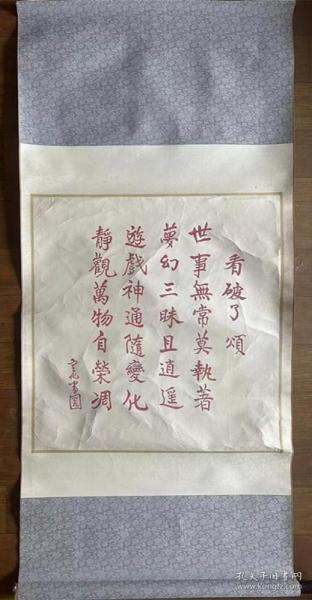 看破了頌
世事無常莫執著
夢幻三昧且逍遥
遊戲神通隨變化
靜觀萬物自榮凋
孔夫子旧书网